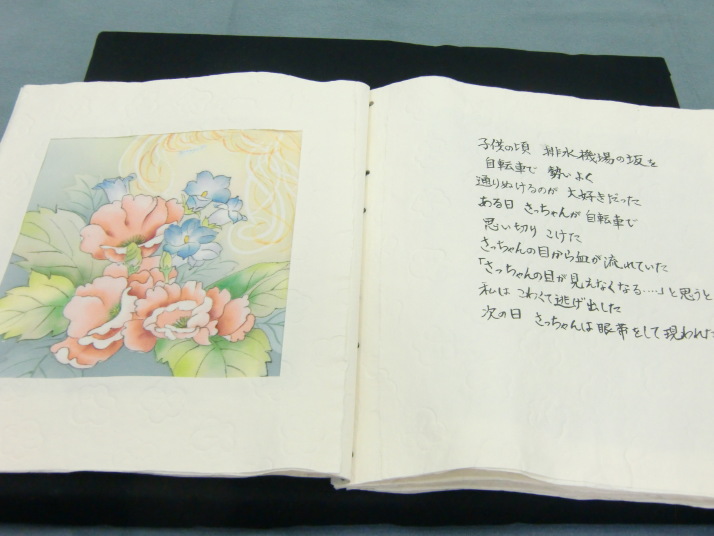 子供の頃 排水機場の坂を
自転車で 勢いよく
通りぬけるのが 大好きだった
ある日 さっちゃんが 自転車で
思い切り こけた
さっちゃんの目から血が流れていた
「さっちゃんの目が見えなくなる‥‥」と思うと
私は こわくて逃げ出した
次の日 さっちゃんは眼帯をして現われた